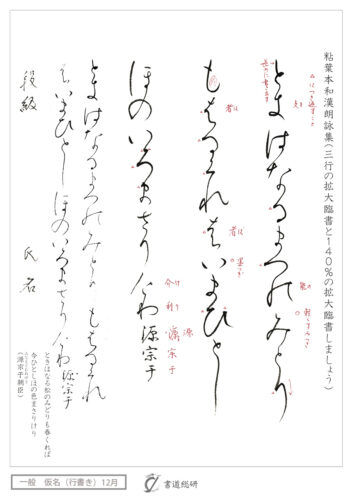 粘葉本和漢朗詠集（三行の拡大臨書と140％の拡大臨書しましょう）
ときはなるまつのみとり
もはるくれはいまひとし
ほのいろまさりけり 源宗于
者は
者は
墨つぎ
介け
利り
源
宗
于
ときはなるまつのみとりもはるくれ
はいまひとしほのいろまさりけり 源宗于
段級 氏名
ときはなる松のみどりも春くれば
今ひとしほの色まさりけり
（源宗于朝臣）
一般 仮名（行書き）12月
書道総研